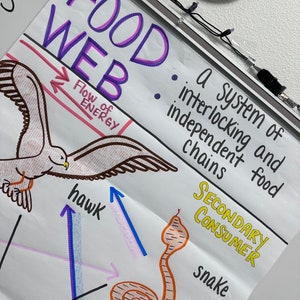 FOOD
WEB
Flow of
ENERGY
• a system of
• interlocking and
independent food
chains
hawk
SECONDARY
CONSUMER
snake